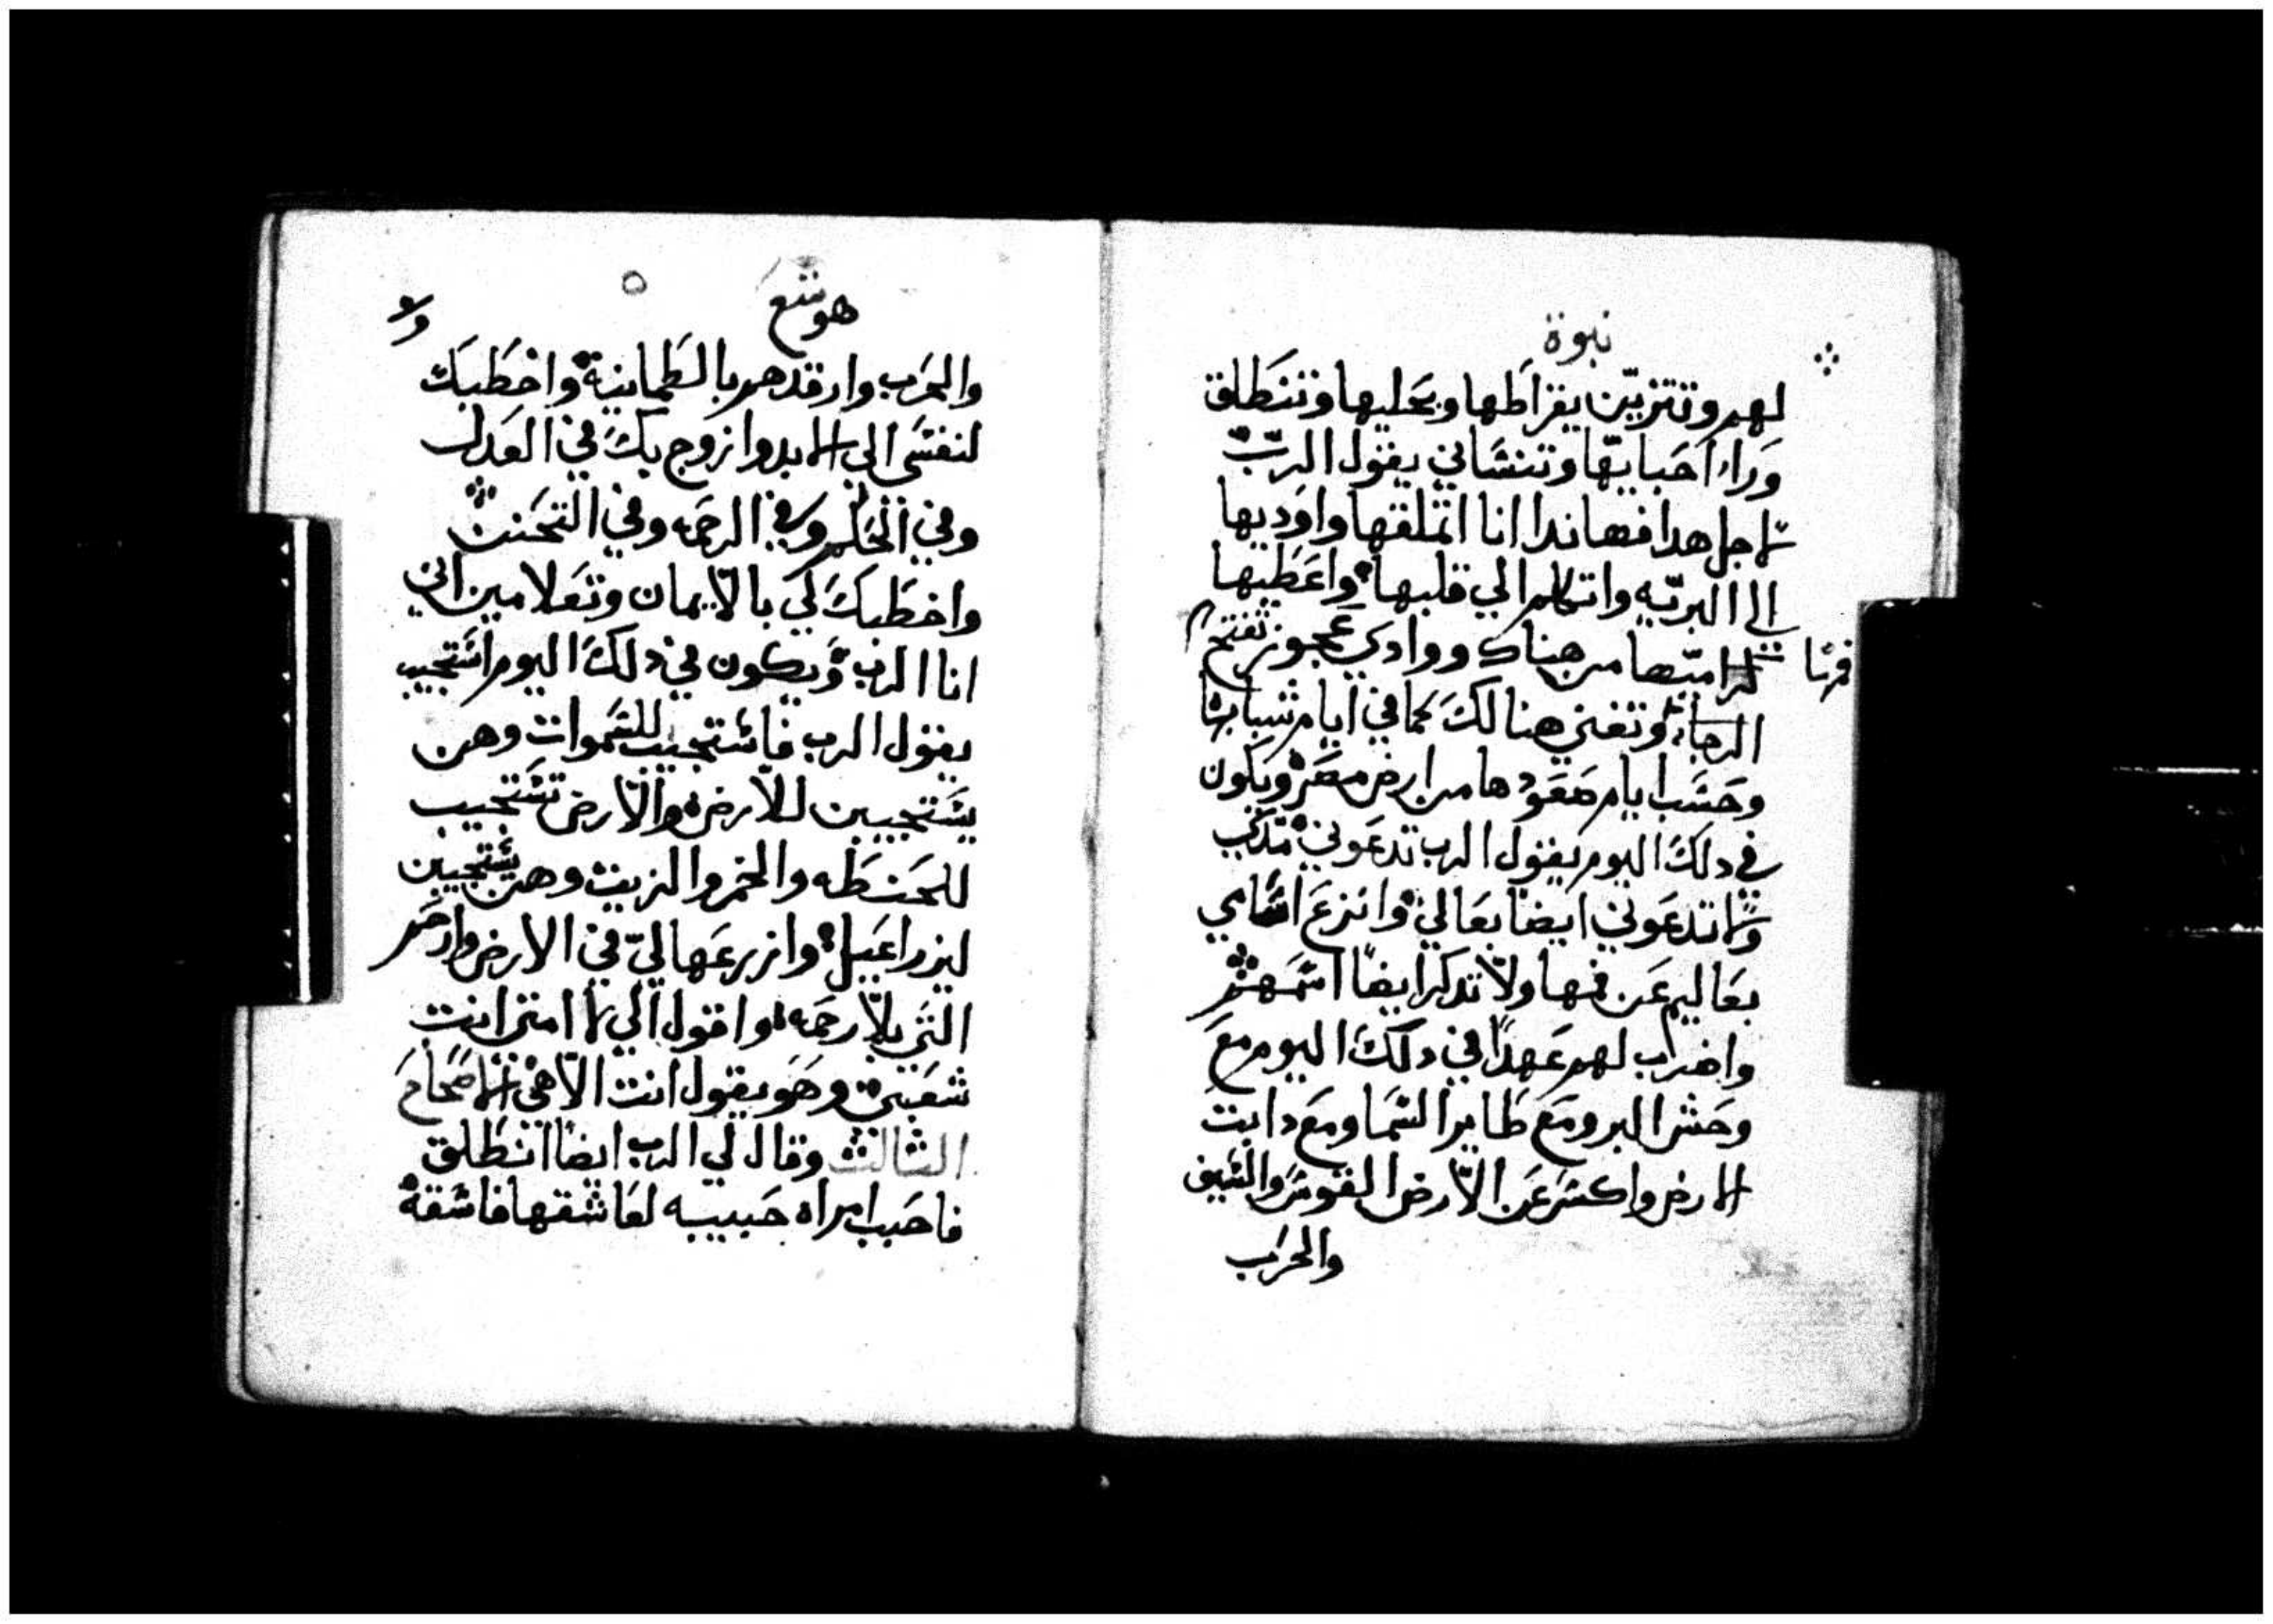 نبوة
لهم وتتزيّن بقراطها وبحليها وتنطلق
وراء احبايّها وتنساني يقول الربّ
لاجل هدا فهاندا انا اتملقها واوديها
الى البريّه واتكلم الي قلبها واعطيها
كراميّها من هناك ووادي عجوز تفتح
الرجاء وتغني هنالك كما في ايام شبابها
وحسب ايام صعودها من ارض مصر ويكون
في دلك اليوم يقول الرب تدعوني
ولا تدعوني ايضا بعالي وانزع اسامي
بعاليم عن فمها ولا تدكر ايضًا اسمهم
واضراب لهم عهدًا في دلك اليوم مع
وحش البر ومع طاير السما ومع دابت
الارض واكسر عن الارض القوس والسيف
والحراب
هوشع
والحرب وارقدهم بالطمانينة واخطبك
لنفسى الي الابد وازوج بك في العدل
وفي الحكم وفي الرحمه وفي التحنن
واخطبك لي بالايمان وتعلامين اني
انا الرب ويكون في دلك اليوم استجيب
يقول الرب فاستجيب للسموات وهن
يستجيبين للارض والارض تستجيب
للحنطه والخمر والزيت وهن يستجيبن
ليزراعيل وازرعها ليّ في الارض وارحم
التي بلا رحمه واقول الي لا امتي انت
شعبي وهو يقول انت الاهي الاصحاح
الثالث وقال لي الرب ايضًا انطلق
فاحبب امراه حبيبه لعاشقها فاسقة